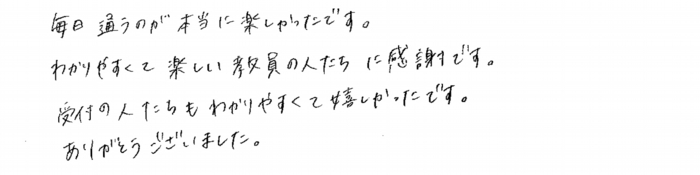 毎日通うのが本当に楽しかったです。
わかりやすくて楽しい教員の人たちに感謝です。
受付の人たちもわかりやすくて嬉しかったです。
ありがとうございました。